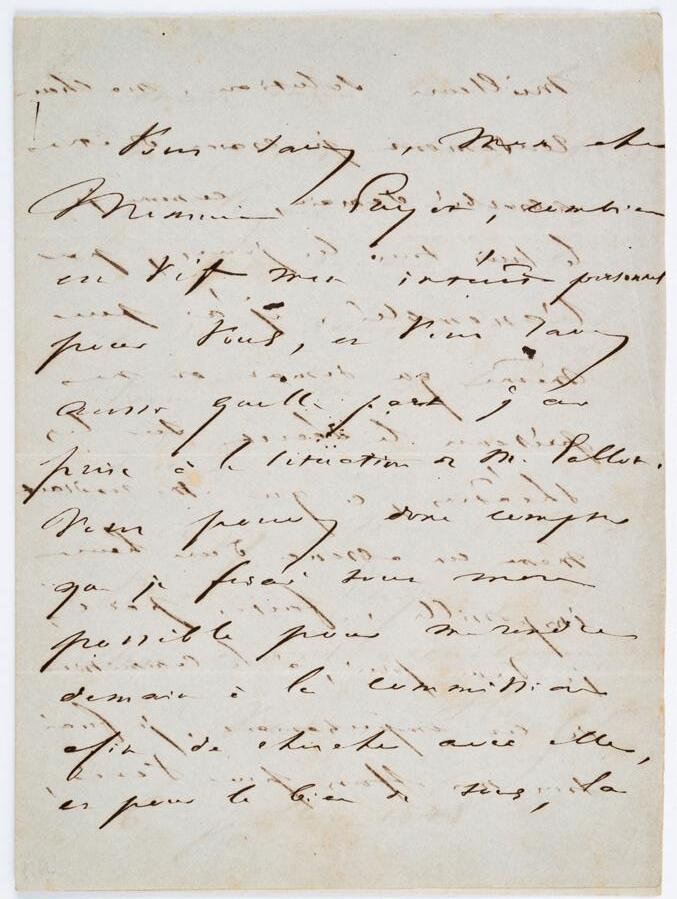 Vous savez, Mon cher
Monsieur combien
est vif mon intérêt personnel
pour vous, et vous savez
aussi quelle part j'ai
prise à la situation de M.
Vous pouvez donc compter
que je ferai tout mon
possible pour me rendre
demain à la commission
afin de chercher avec elle,
et pour le bien de tous, la